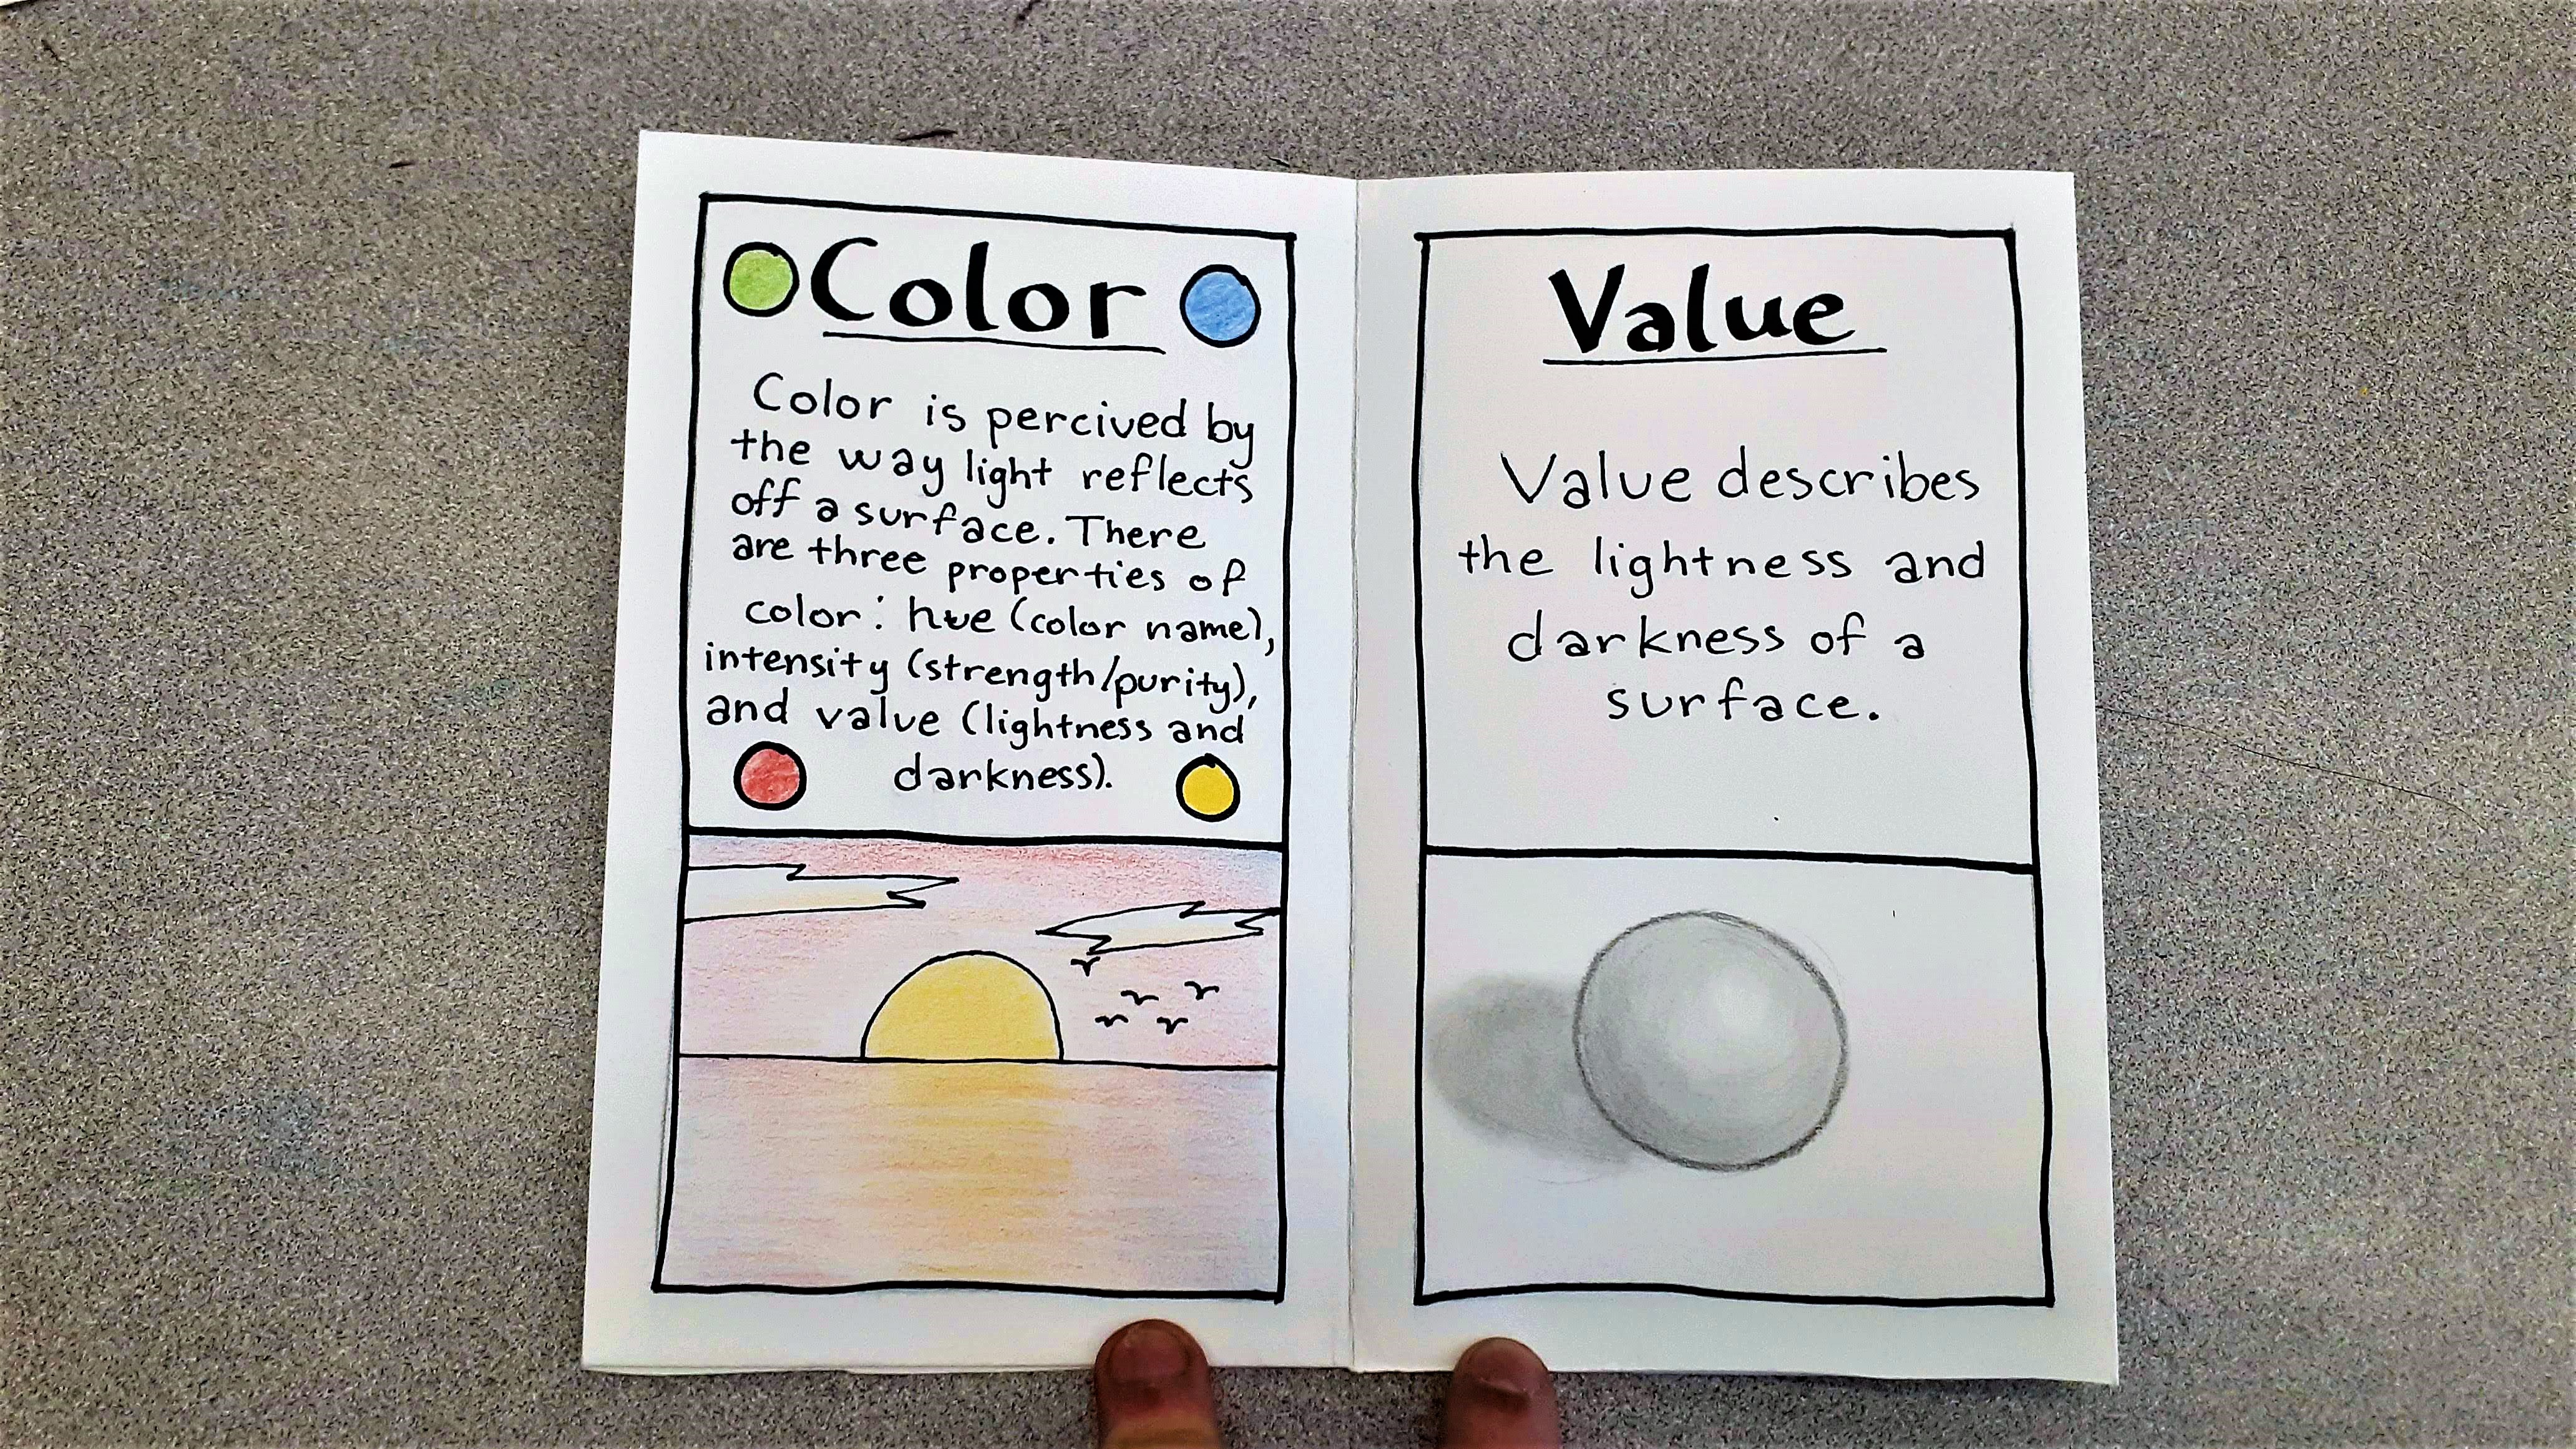 Color
Color is percived by
the way light reflects
off a surface. There
are three properties of
color: hue (color name),
intensity (strength/purity),
and value (lightness and
darkness).
Value
Value describes
the lightness and
darkness of a
surface.